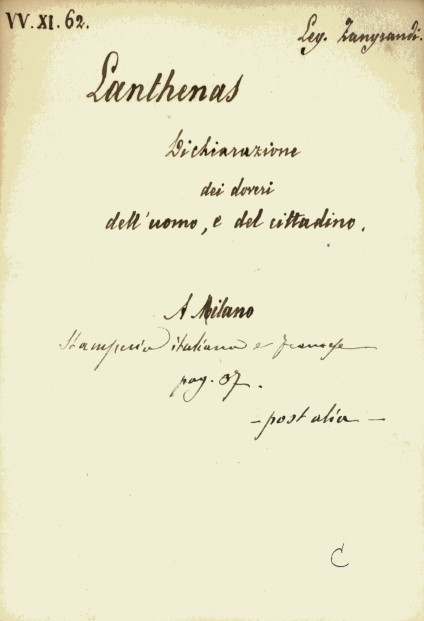 VV. XI. 62.
Leg. Zangrandi.
Lanthenas
Dichiarazione
dei doveri
dell'uomo, e del cittadino.
A Milano
Stamperia italiana e francese
pag. 37.
- post alia -
C